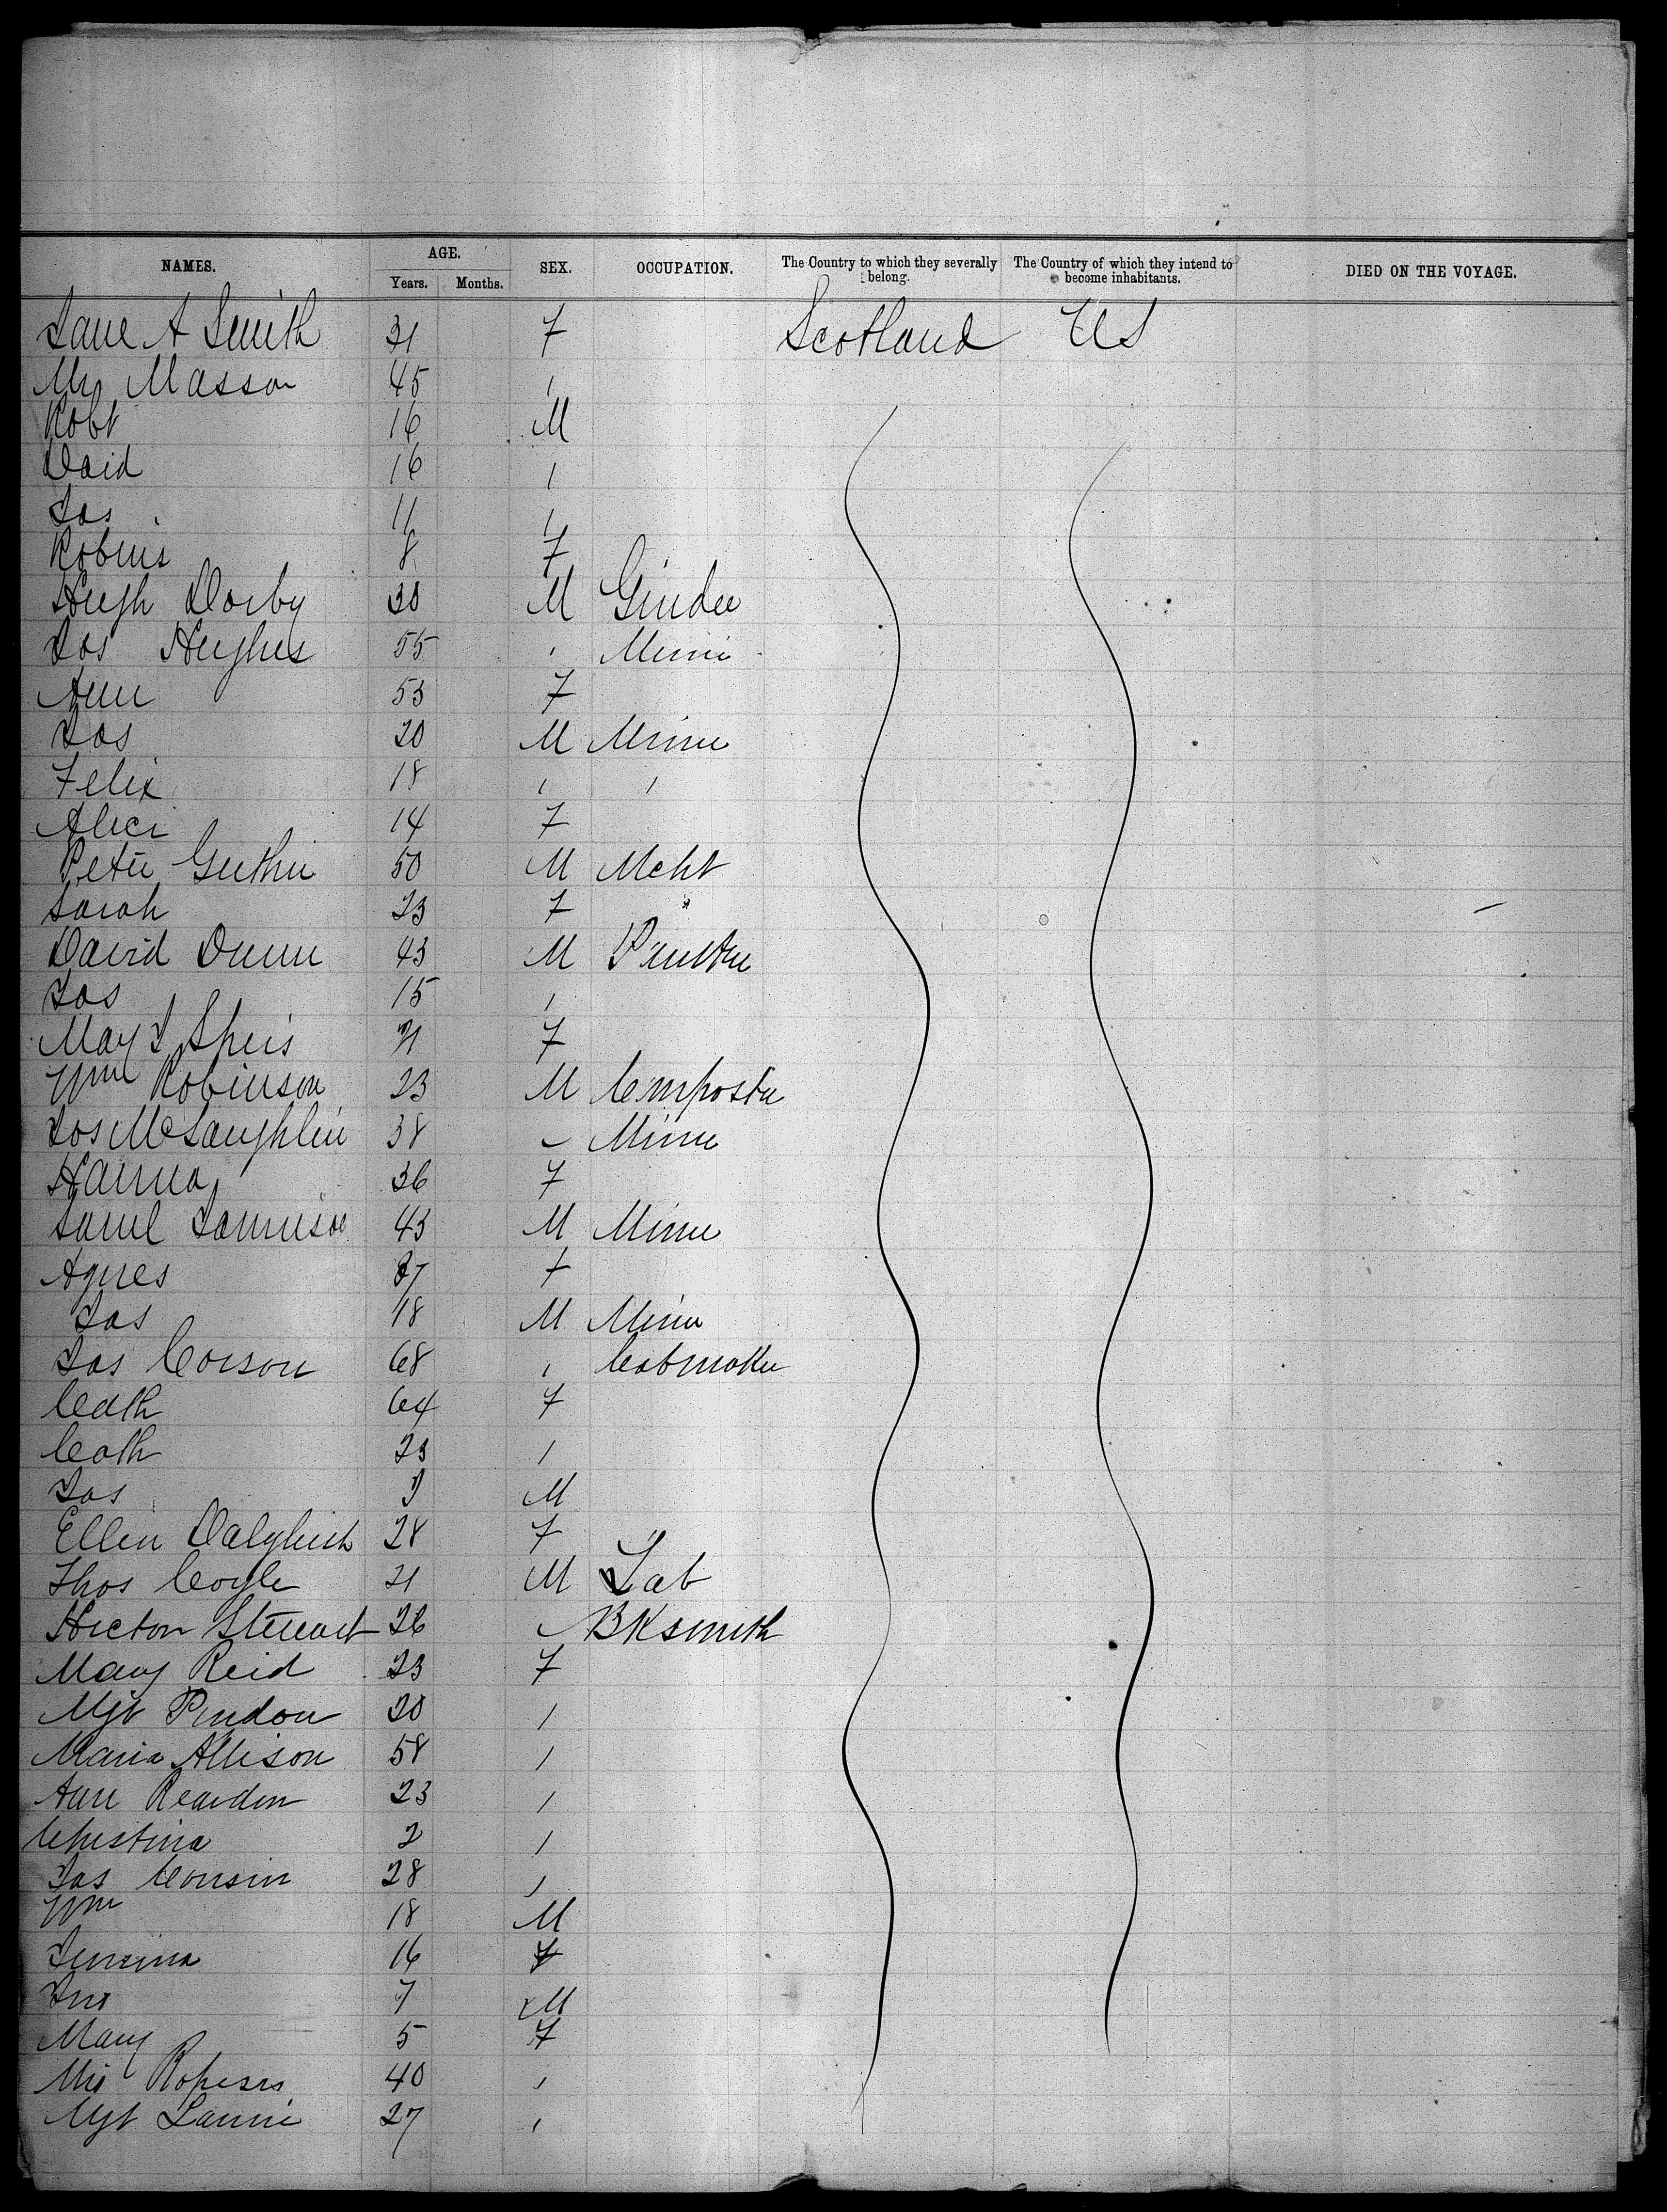 NAMES. AGE. SEX. OCCUPATION. The Country to which they severally belong. The Country of which they intend to become inhabitants. DIED ON THE VOYAGE.
Years. Months.
Jane A Smith 31 F Scotland US
Mrs Masson 45 "
Robt 16 M
Daid 16 "
Jas 11 "
Robins 8 F
Hugh Dorby 30 M Ginder
Jas Hughes 55 " Miner
Ann 53 F
Jas 20 M Miner
Felix 18 " "
Alice 14 F
Peter Guthrie 50 M Mcht
Sarah 23 F "
David Dunn 43 M Painter
Jas 15 "
Mary J Speis 21 F
Wm Robinson 23 M Compostor
Jos McLaughlin 38 " Miner
Hanna 36 F
Saml Jamieson 43 M Miner
Agnes 37 F
Jas 18 M Miner
Jas Corson 68 " Cabmaker
Cath 64 F
Cath 23 "
Jas M
Ellen Dalglish 28 F
Thos Coyle 21 M Lab
Hector Stewart 26 " BKsmith
Mary Reid 23 F
Mgt Pendon 20 "
Maria Allison 58 "
Ann Reardon 23 "
Christina 2 "
Jas Cousin 28 "
Wm 18 M
Jemima 16 F
Jno 7 M
Mary 5 F
Mrs 40 "
Mgt Laurie 27 "